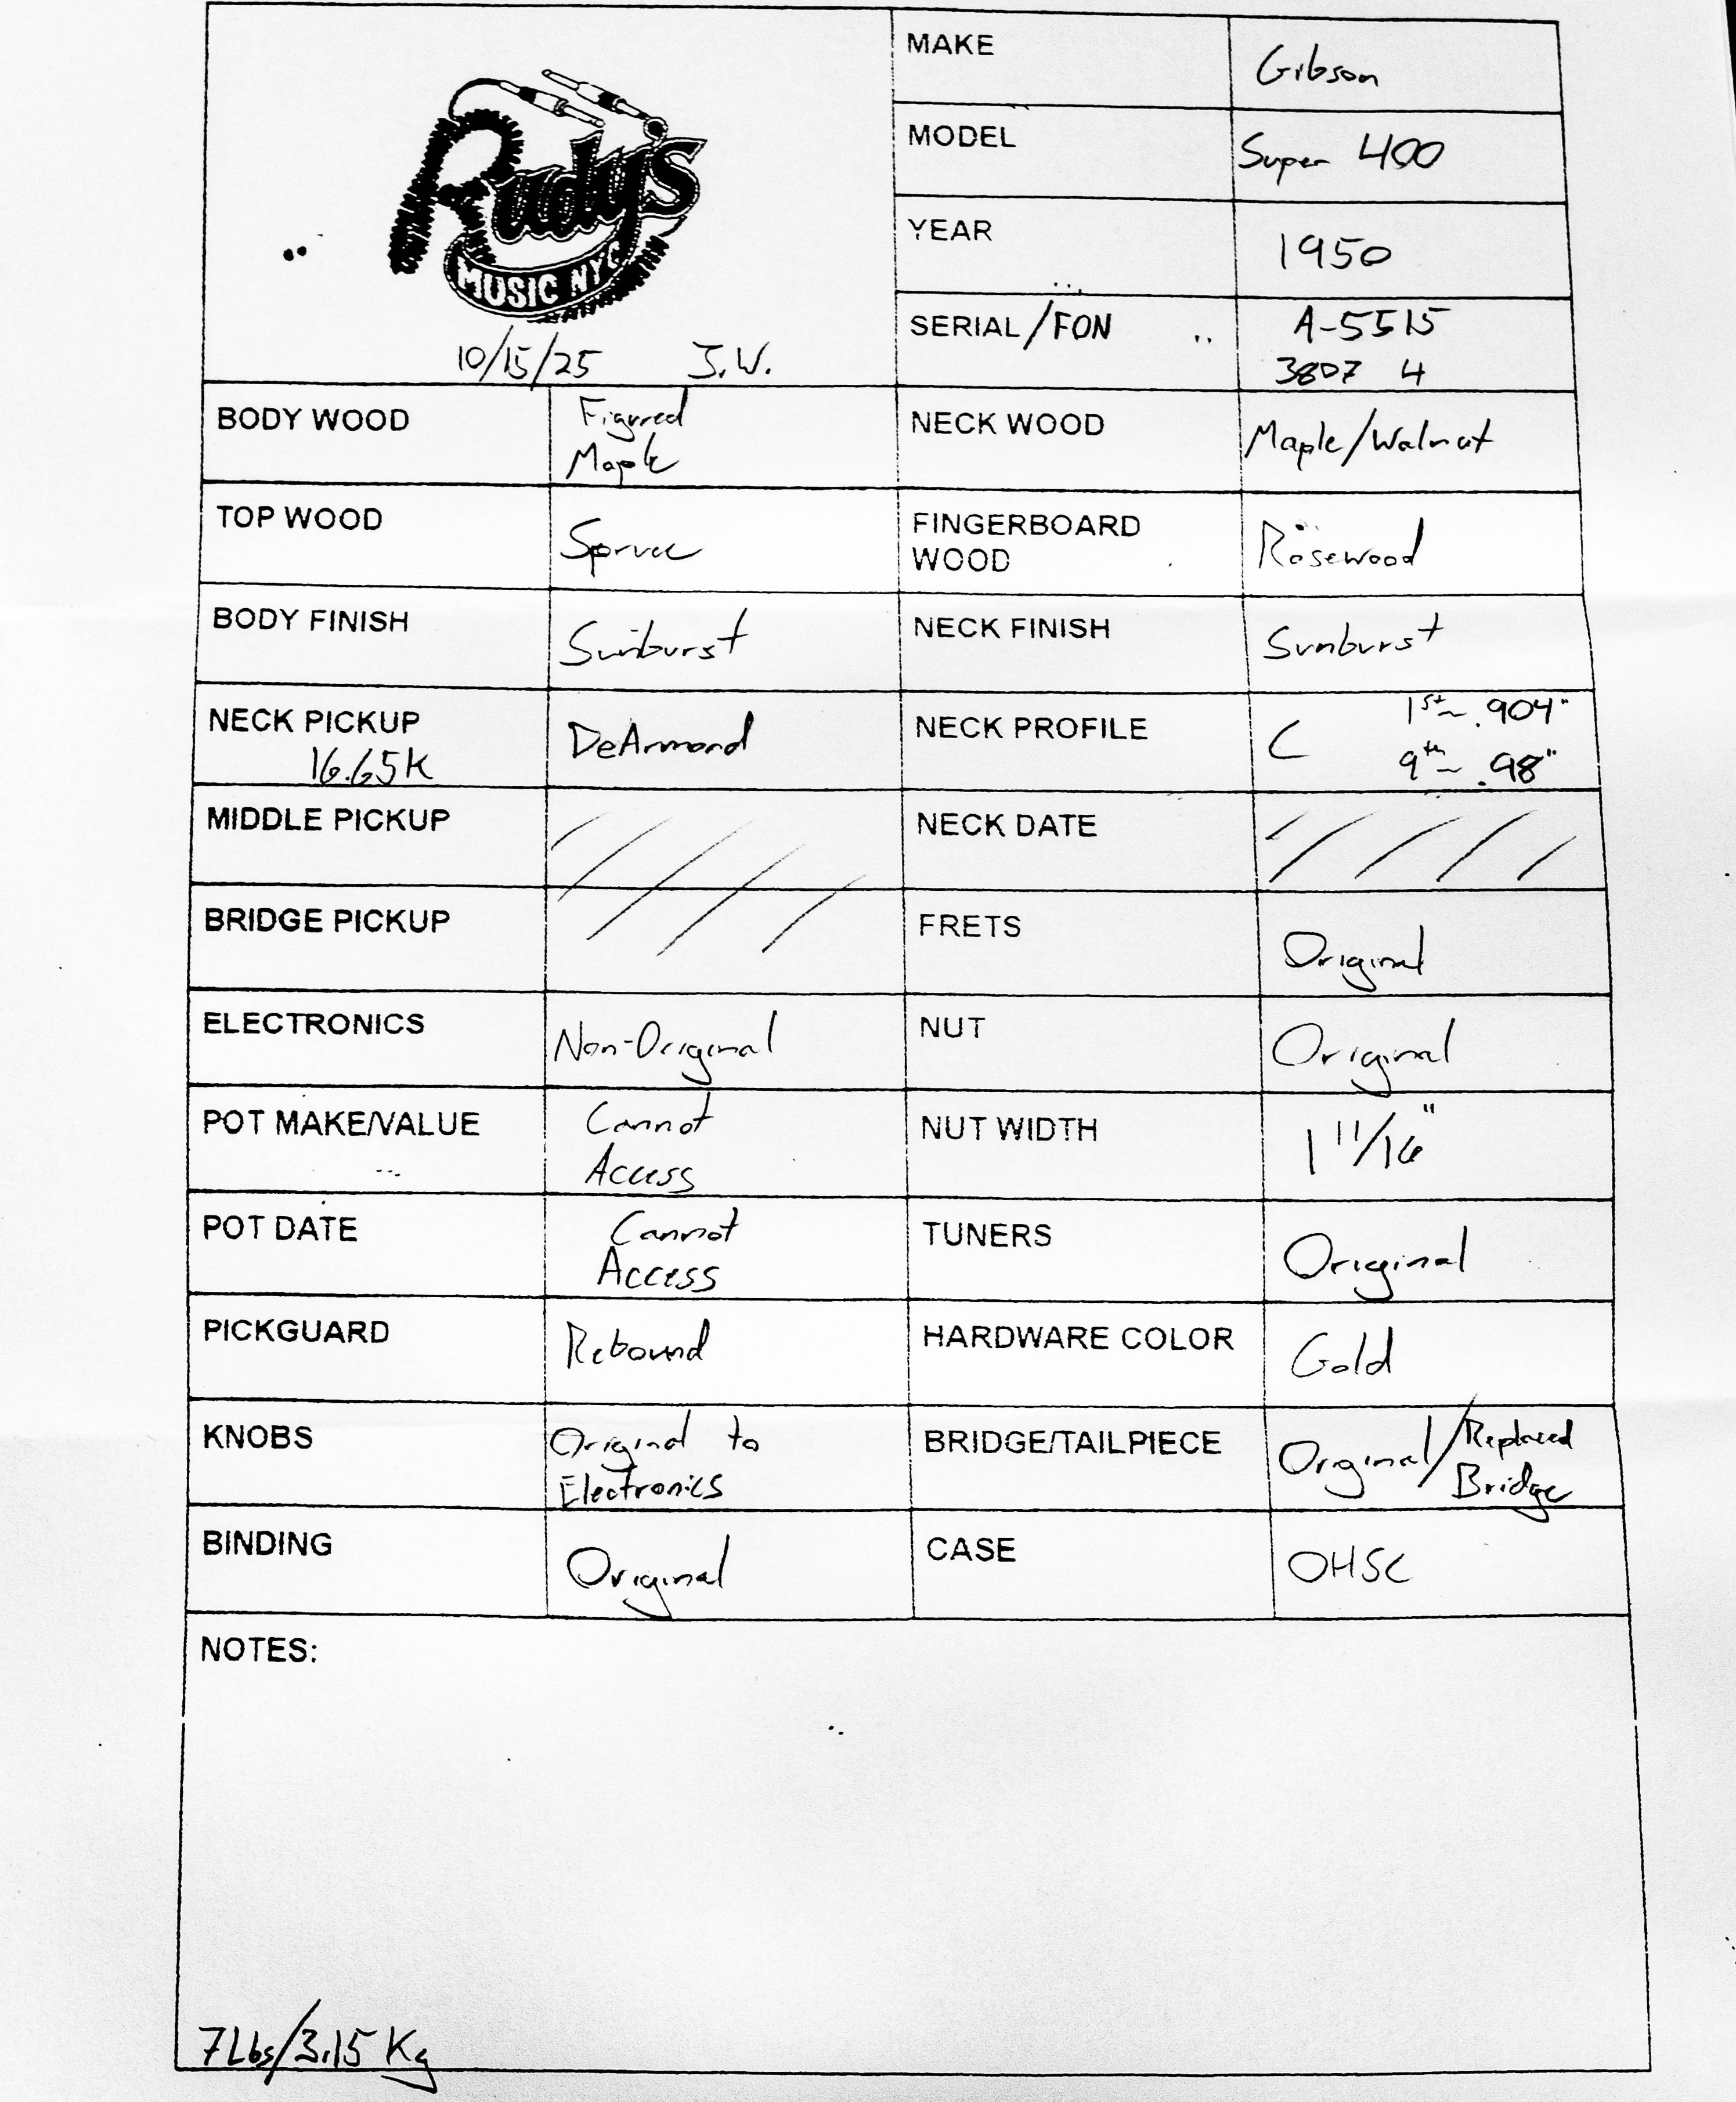 Rudy's
MUSIC NYC
10/15/25 J.W.
MAKE Gibson
MODEL Super 400
YEAR 1950
SERIAL/FON A-5515
3807 4
BODY WOOD Figured
Maple
NECK WOOD Maple/Walnut
TOP WOOD Spruce
FINGERBOARD
WOOD Rosewood
BODY FINISH Sunburst
NECK FINISH Sunburst
NECK PICKUP DeArmond
16.65K
NECK PROFILE C 1st ~ .904"
9th ~ .98"
MIDDLE PICKUP
NECK DATE
BRIDGE PICKUP
FRETS Original
ELECTRONICS Non-Original
NUT Original
POT MAKE/VALUE Cannot
Access
NUT WIDTH 1 11/16"
POT DATE Cannot
Access
TUNERS Original
PICKGUARD Rebound
HARDWARE COLOR Gold
KNOBS Original to
Electronics
BRIDGE/TAILPIECE Original/Replaced
Bridge
BINDING Original
CASE OHSC
NOTES:
7Lbs/3.15 Kg